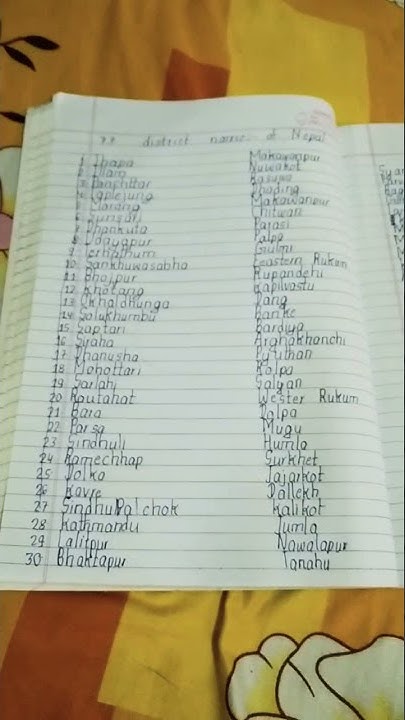 77 district name of Nepal
1 Jhapa Makawanpur
2 Illam Nuwakot
3 Panchthar Rasuwa
4 Taplejung Dhading
5 Morang Makawanpur
6 Sunsari Chitwan
7 Dhankuta Parasi
8 Udayapur Palpa
9 Terhathum Gulmi
10 Sankhuwasabha Eastern Rukum
11 Bhojpur Rupandehi
12 Khotang Kapilvastu
13 Okhaldhunga Dang
14 Solukhumbu Banke
15 Saptari Bardiya
16 Siraha Arghakhanchi
17 Dhanusha Pyuthan
18 Mohottari Rolpa
19 Sarlahi Salyan
20 Routahat Wester Rukum
21 Bara Dolpa
22 Parsa Mugu
23 Sindhuli Humla
24 Ramechhap Surkhet
25 Dolka Jajarkot
26 Kavre Dailekh
27 SindhuPalchok Kalikot
28 Kathmandu Jumla
29 Lalitpur Nawalapur
30 Bhaktapur Tanahu